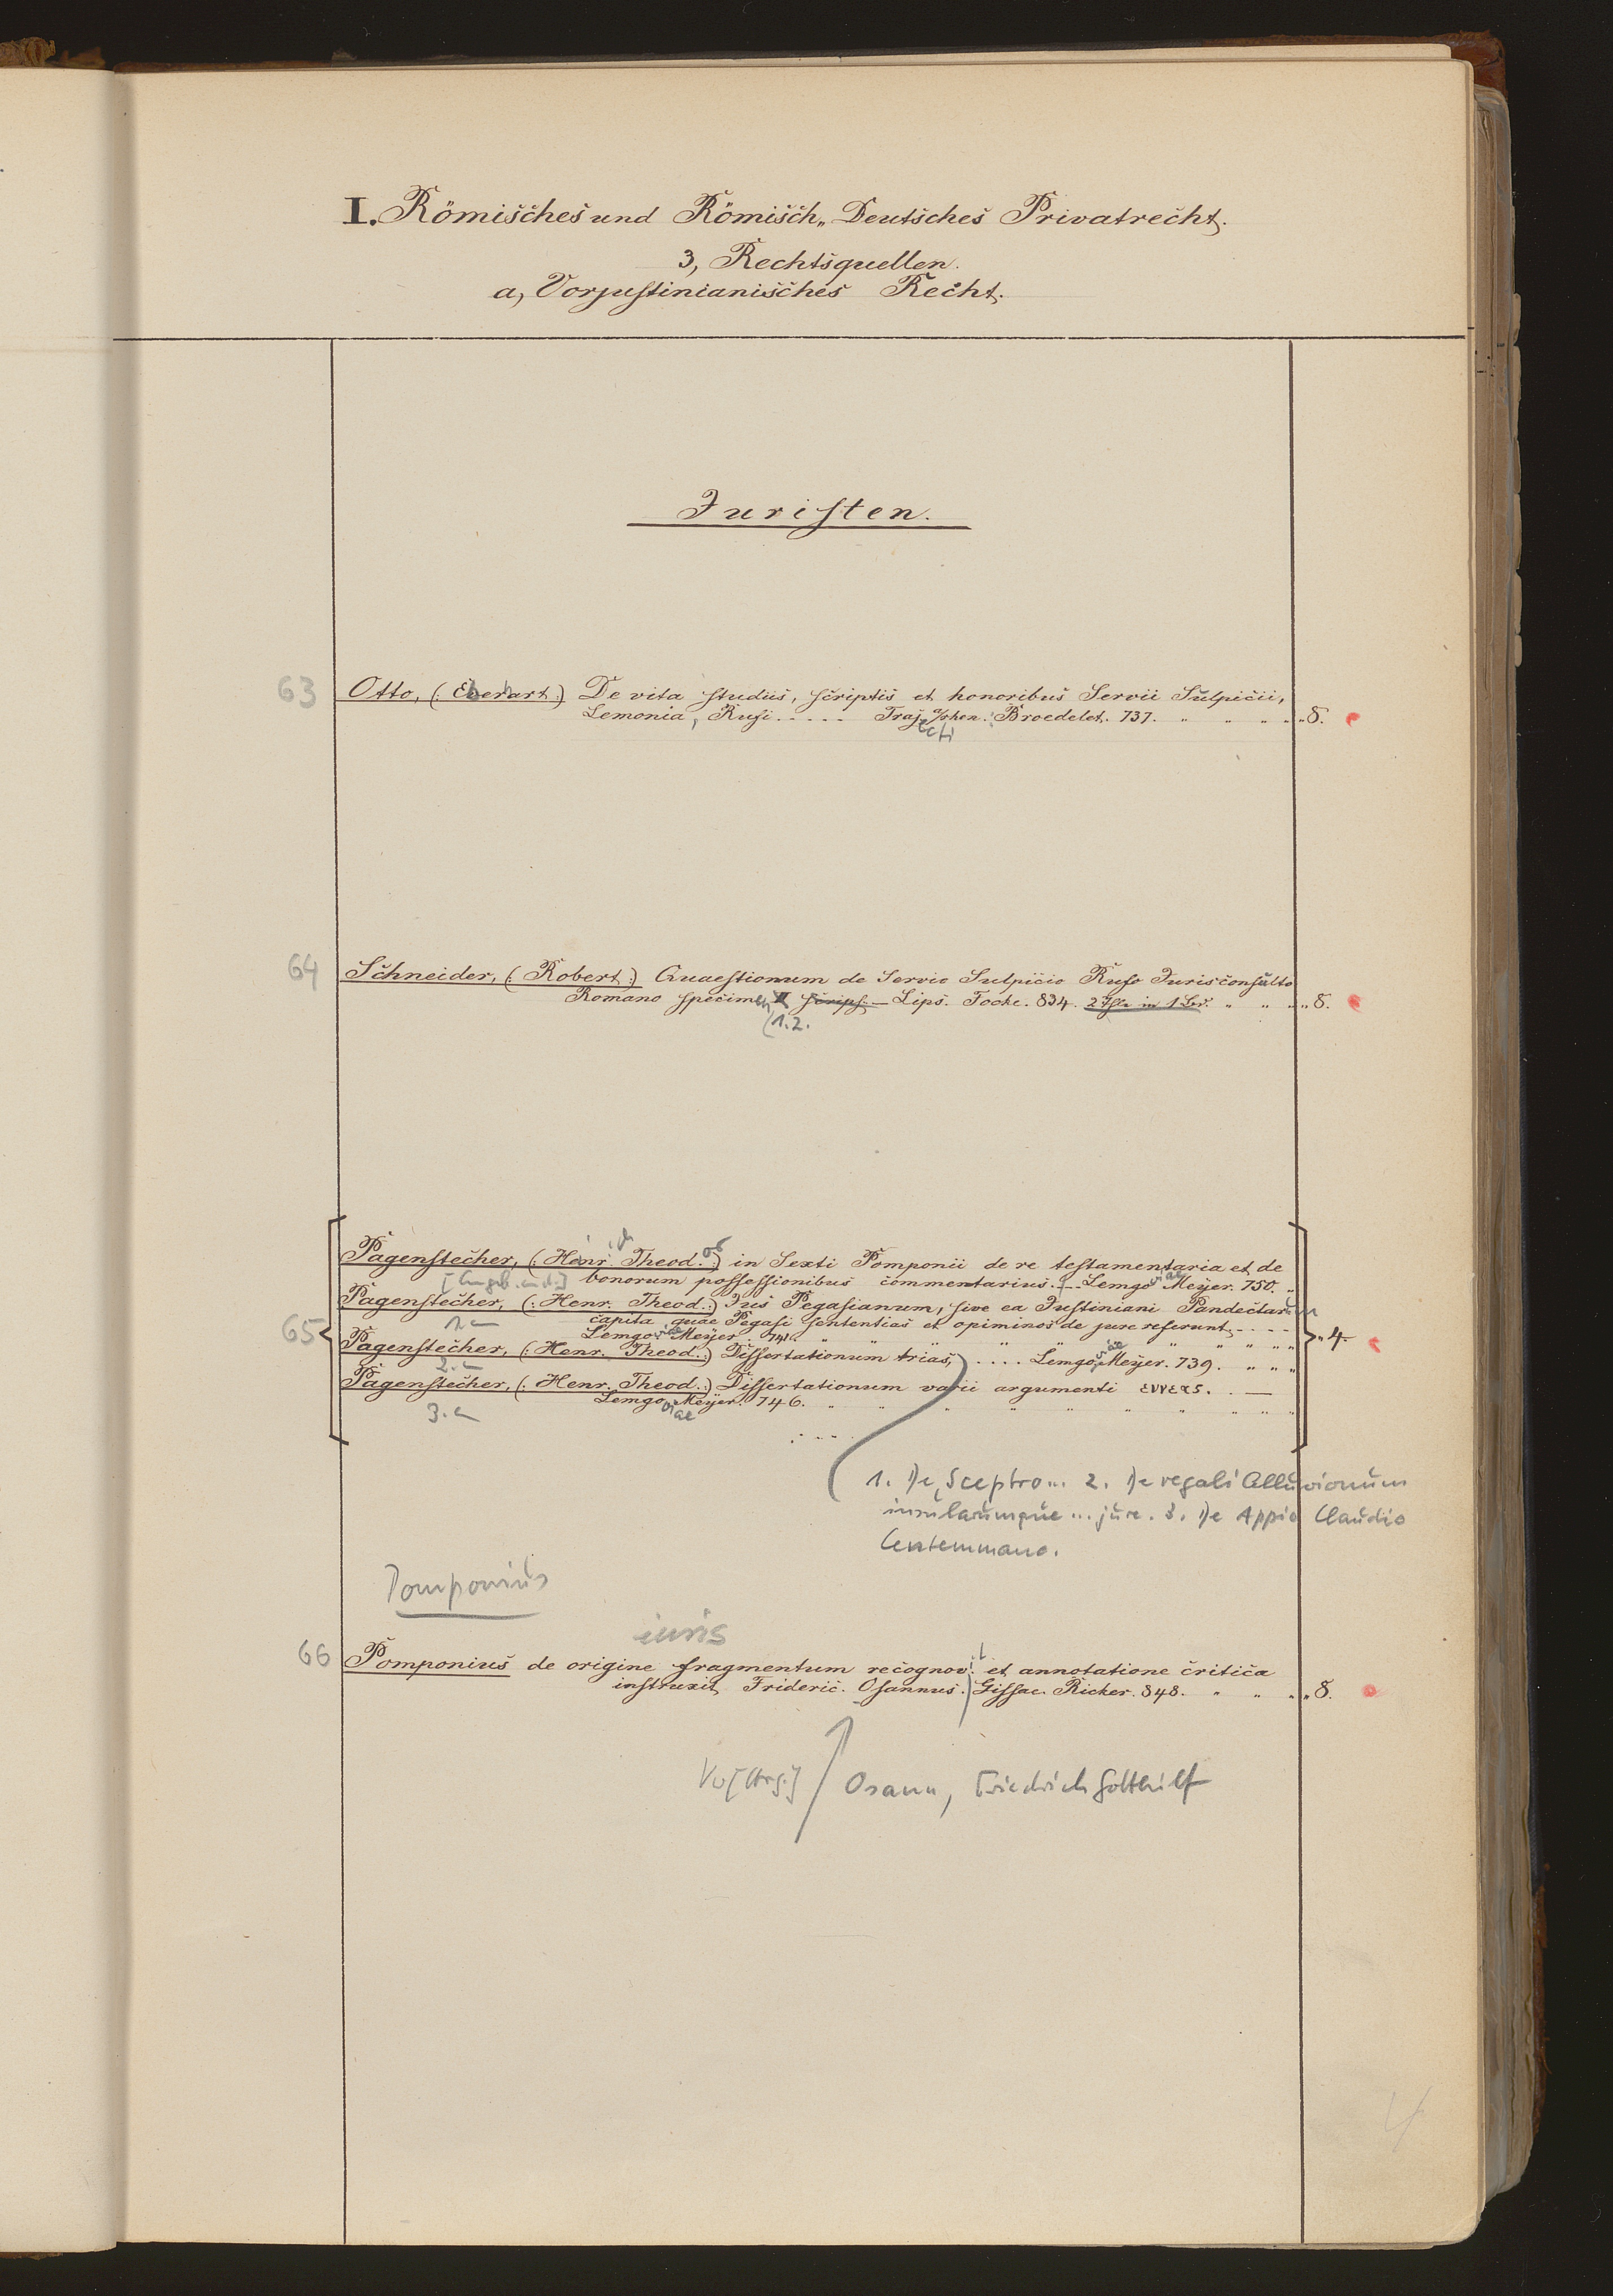 I. Römisches und Römisch„ Deutsches Privatrecht.
3, Rechtsquellen.
a, Vorjustinianisches Recht.
Juristen.
63 Otto, (: Everart :) De vita studiis, scriptis et honoribus Servii Sulpicii,
Lemonia, Rufi. . . . . Traj. a/rhen. Broedelet. 737. " " " " " 8.
ecti
64 Schneider, (: Robert :) Quaestionum de Servio Sulpicio Rufo Jurisconsulto
Romano specimen II scripf. — Lips. Focke. 834. 2 Thle in 1 Bd. " " " " 8.
(1.2.
Pagenstecher, (: Henr. Theod. :) in Sexti Pomponii de re testamentaria et de
[Angeb. an d.] bonorum possessionibus commentarius. — Lemgoviae Meÿer. 750. "
Pagenstecher, (: Henr. Theod. :) Jus Pegasianum, sive ea Justiniani Pandectarum
1. capita quae Pegasi sententias et opiminos de jure referunt. - - - -
65 Lemgoviae Meÿer. 741. " " " " " " " " " „ 4.
Pagenstecher, (: Henr. Theod. :) Dissertationum trias, . . . . Lemgoviae Meÿer. 739. " " "
2.
Pagenstecher, (: Henr. Theod. :) Dissertationum varii argumenti εννεας. . —
3. Lemgoviae Meÿer. 746. " " " " " " " " " "
1. De Sceptro... 2. De regali Alluvionum
insularumque ... jure. 3. De Appio Claudio
Centemmano.
Pomponius
iuris
66 Pomponius de origine fragmentum recognovit et annotatione critica
instruxit Frideric. Osannus. Gissae. Ricker. 848. " " " " 8.
Vo [Hrsg.] Osann, Friedrich Gotthilf